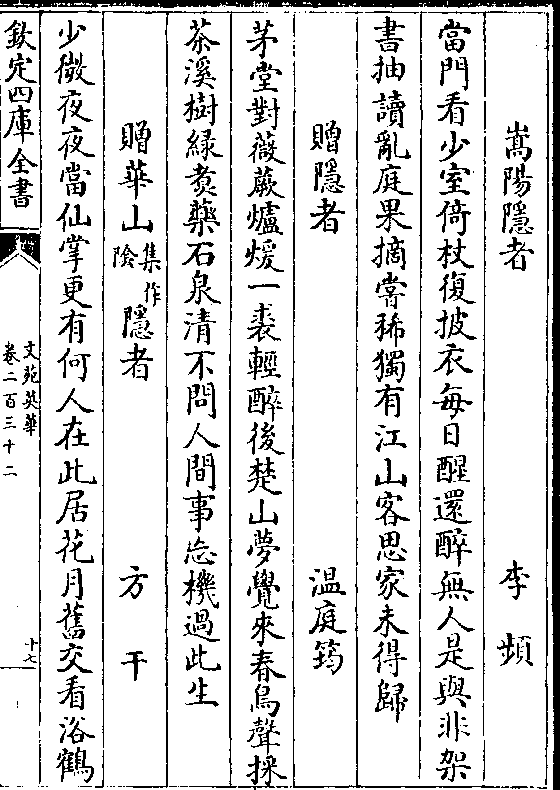 嵩陽隱者　李頻
當門看少室倚杖復披衣每日醒還醉無人是與非架
書抽讀亂庭果摘嘗稀獨有江山客思家未得歸
贈隱者　溫庭筠
茅堂對薇蕨爐煖一裘輕醉後楚山夢覺來春鳥聲採
茶溪樹緑煮藥石泉清不問人間事忘機過此生
贈華山集作陰隱者　方干
少微夜夜當仙掌更有何人在此居花月舊交看浴鶴
欽定四庫全書
文苑英華
卷二百三十二
十七